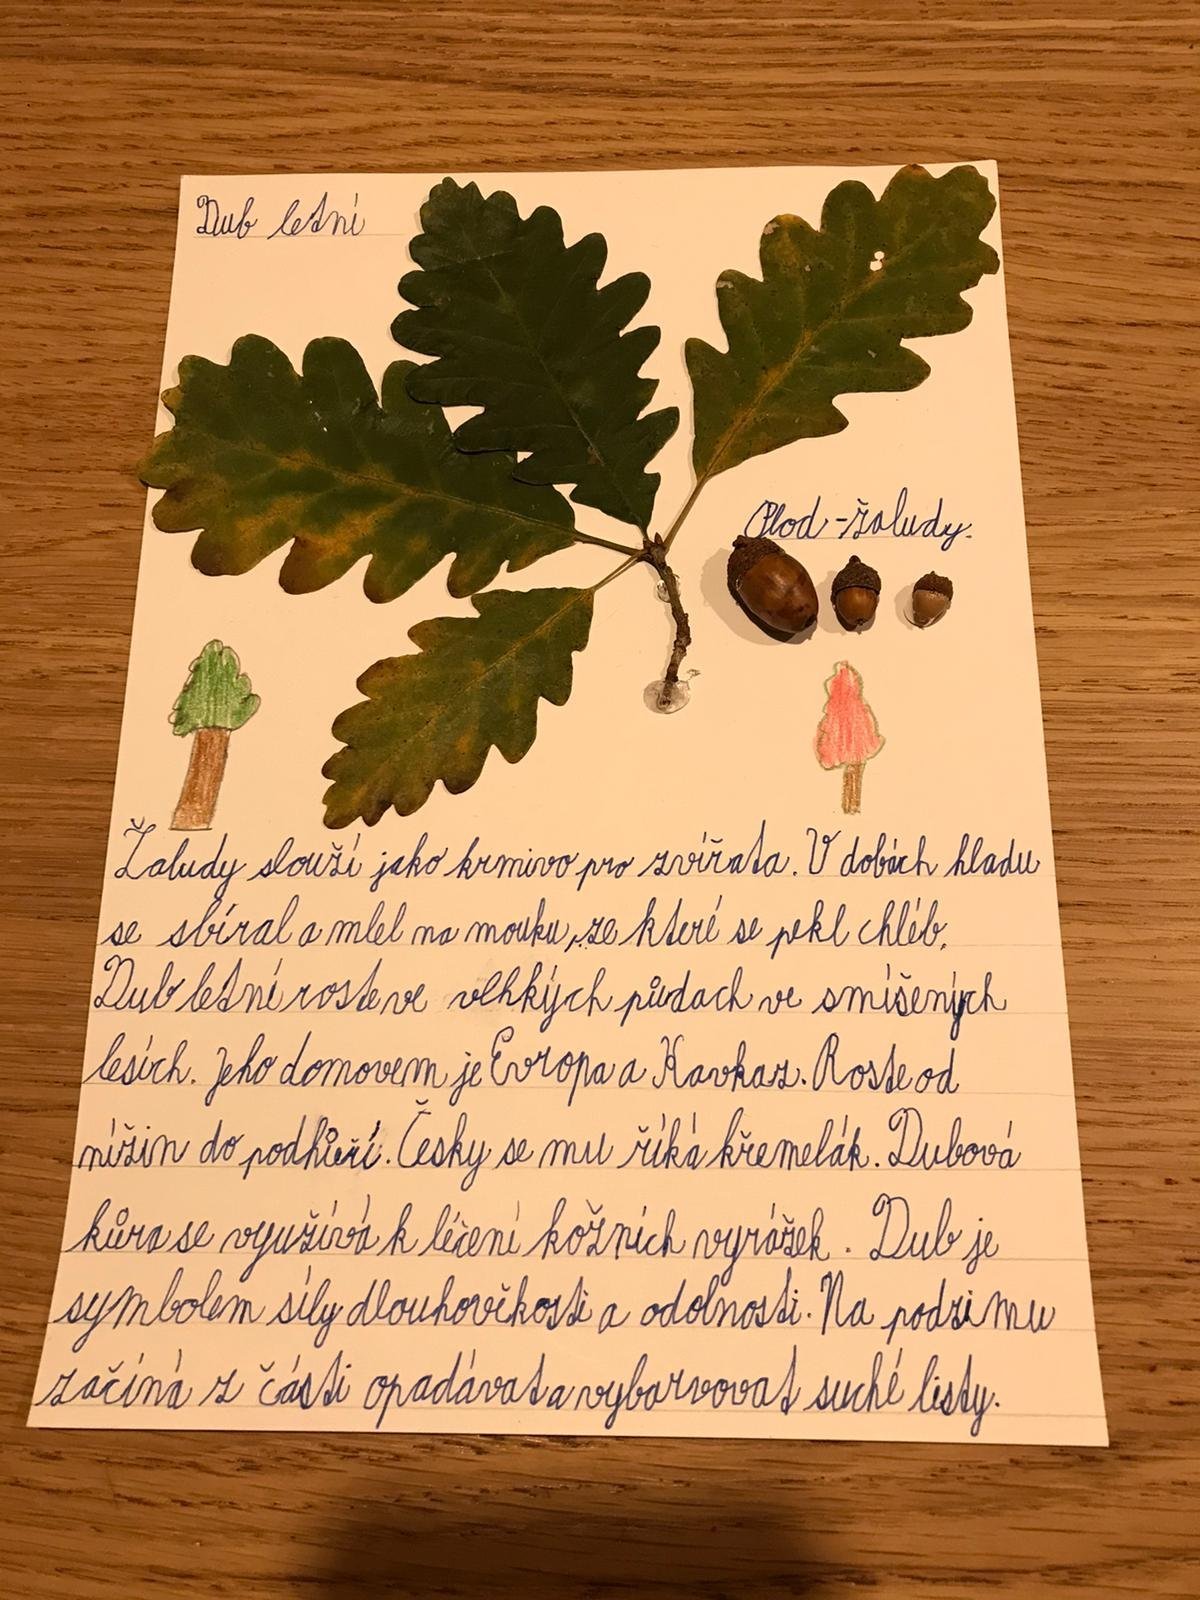 Dub letní
Plod - žaludy.
Žaludy slouží jako krmivo pro zvířata. V dobách hladu
se sbíral a mlel na mouku, ze které se pekl chléb.
Dub letní roste ve vlhkých půdach ve smíšených
lesích. Jeho domovem je Evropa a Kavkaz. Roste od
nížin do podhůří. Česky se mu říká křemelák. Dubová
kůra se využívá k léčení kožních vyrážek. Dub je
symbolem síly dlouhověkosti a odolnosti. Na podzimu
začíná z části opadávat a vybarvovat suché listy.